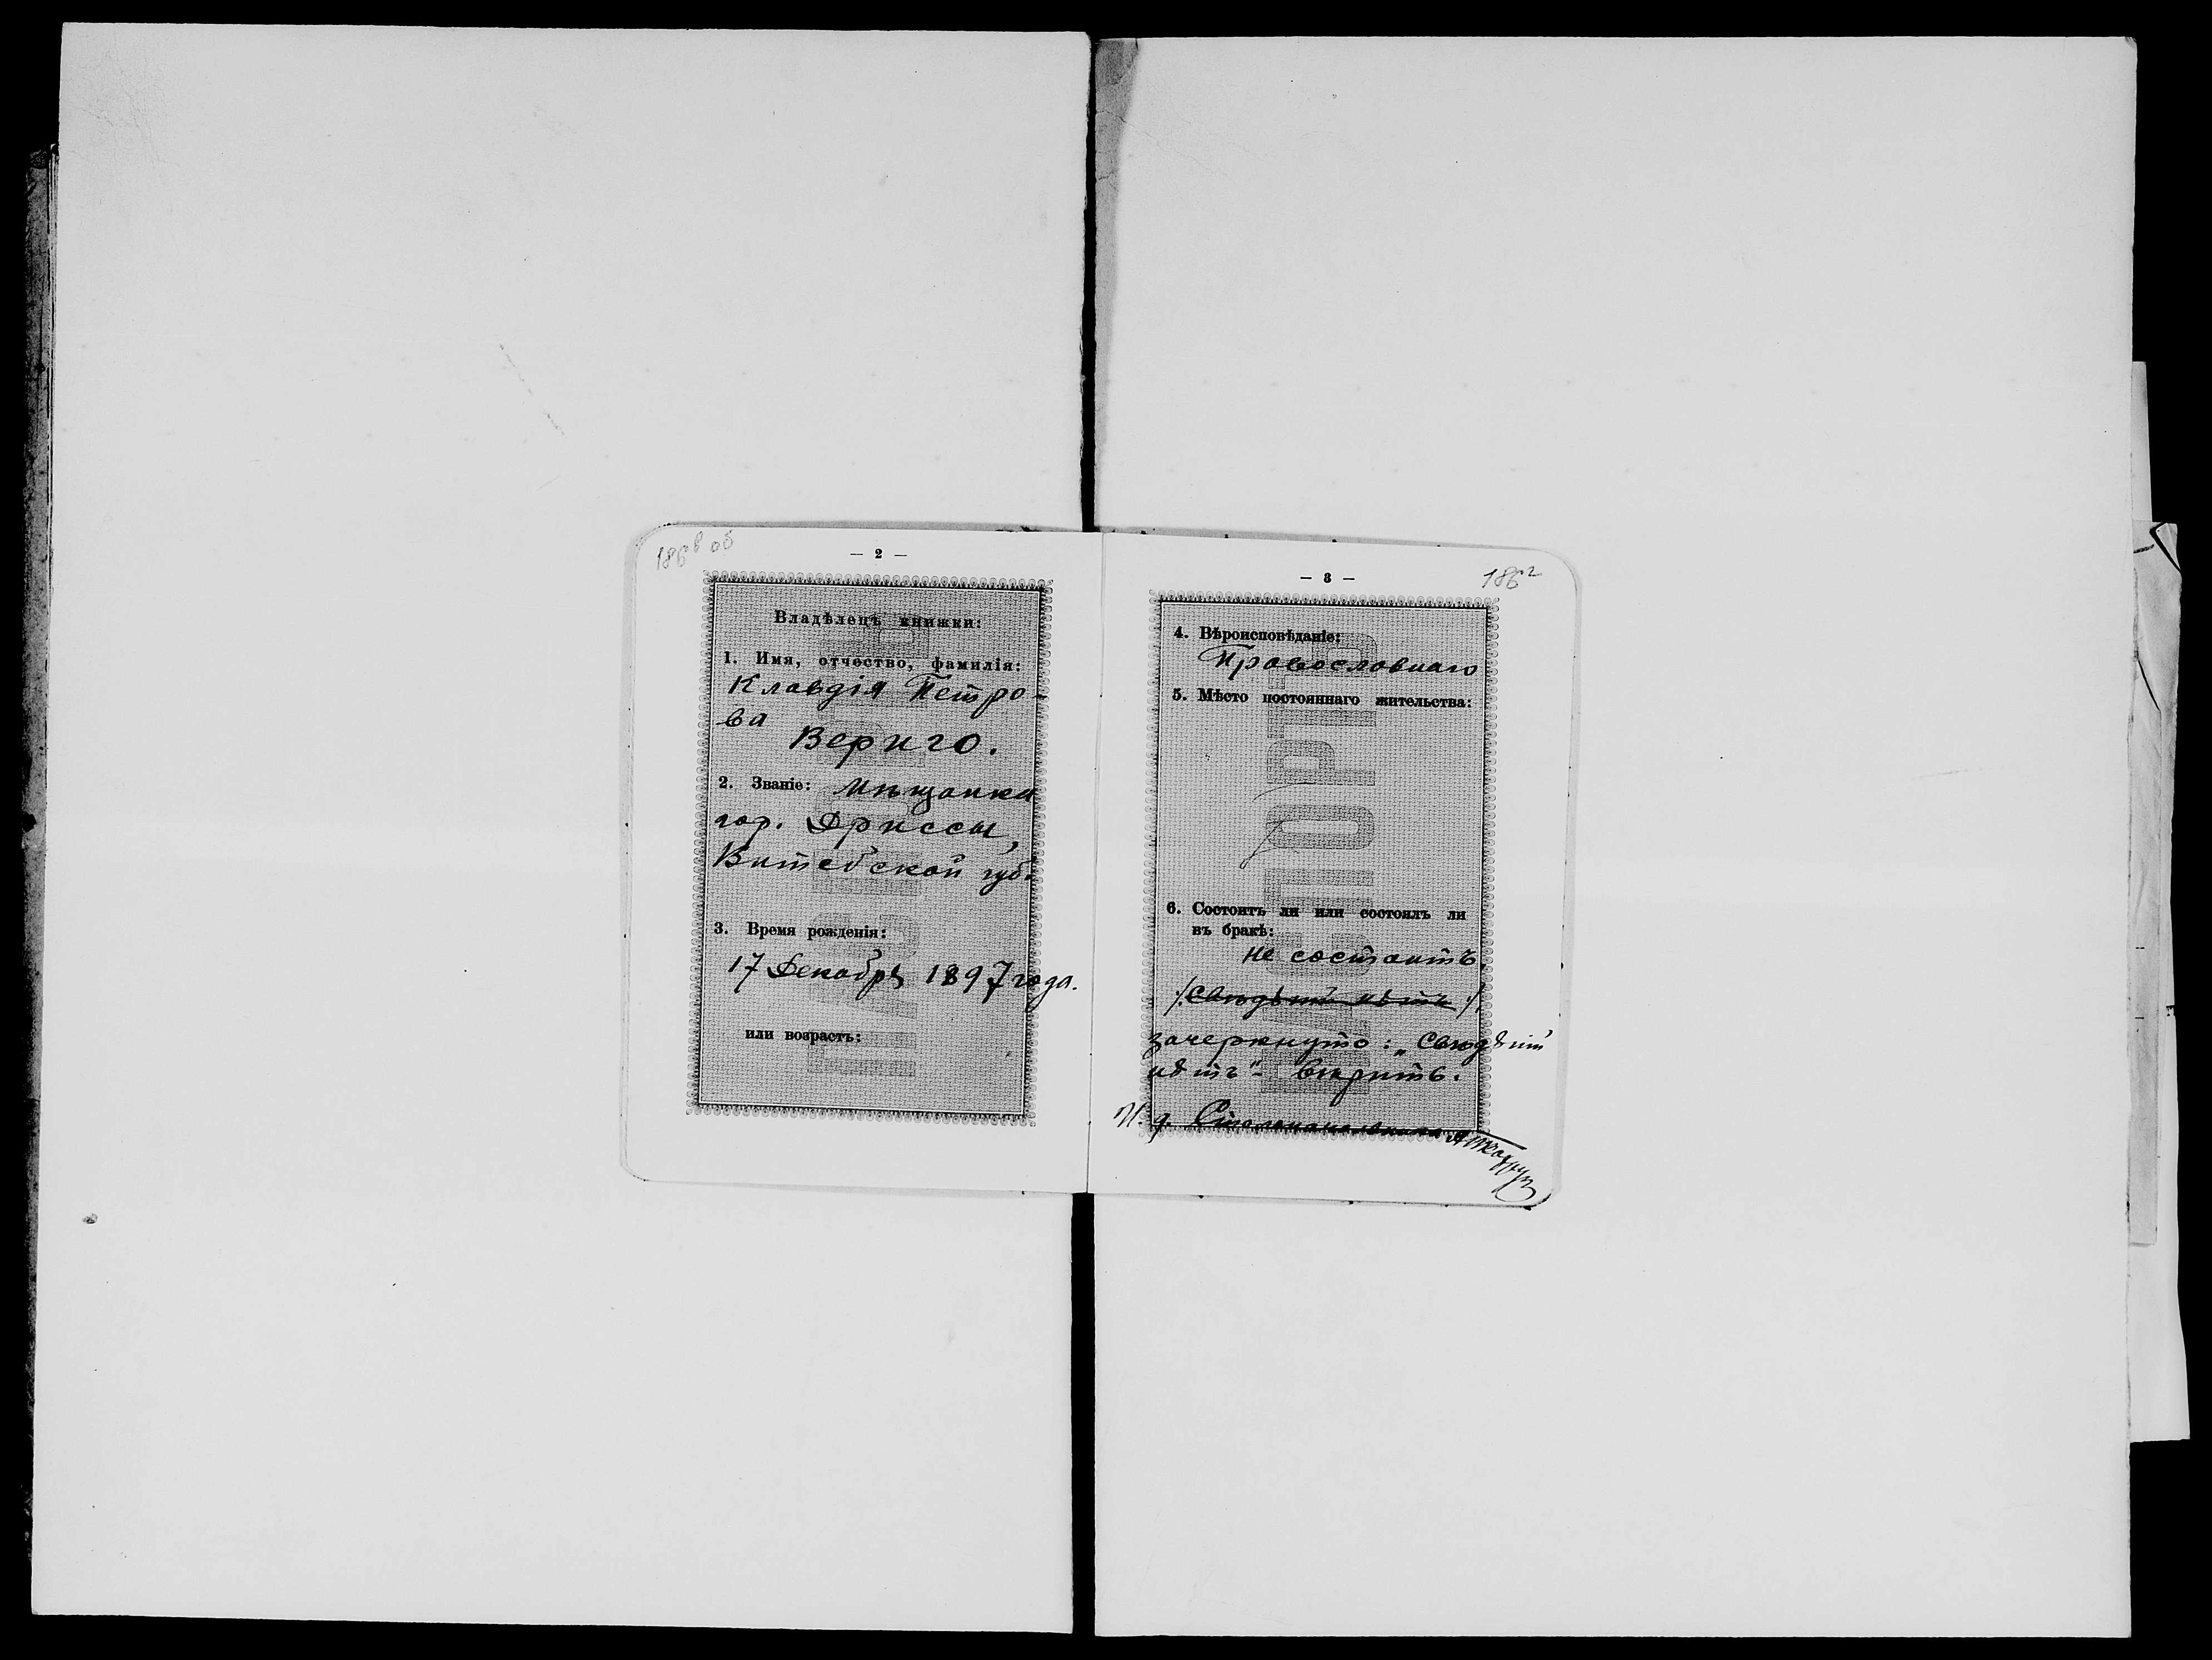 186в об
— 2 —
Владѣлецъ книжки:
1. Имя, отчество, фамилія:
Клавдія Петро-
ва
Вериго.
2. Званіе: мѣщанка
гор. Дриссы,
Витебской губ.
3. Время рожденія:
17 Декабря 1897 года.
или возрастъ:
ПАСПОРТЪ
— 3 —
186г
4. Вѣроисповѣданіе:
Православнаго
5. Мѣсто постояннаго жительства:
6. Состоитъ ли или состоялъ ли
въ бракѣ:
не состоитъ.
/:Свѣдѣній нѣтъ:/
зачеркнуто: „Свѣдѣній
нѣтъ" - вѣрить.
И. д. Столоначальника
ПАСПОРТЪ